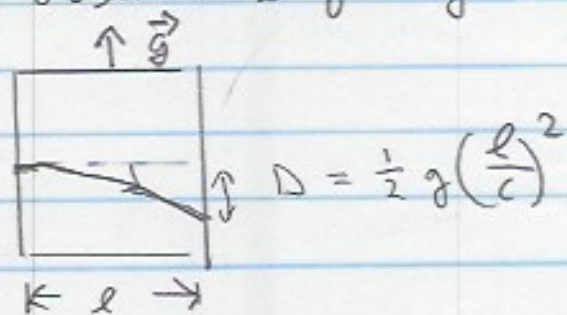 ↑ g⃗
D = ½ g(ℓ/c)²
|← ℓ →|